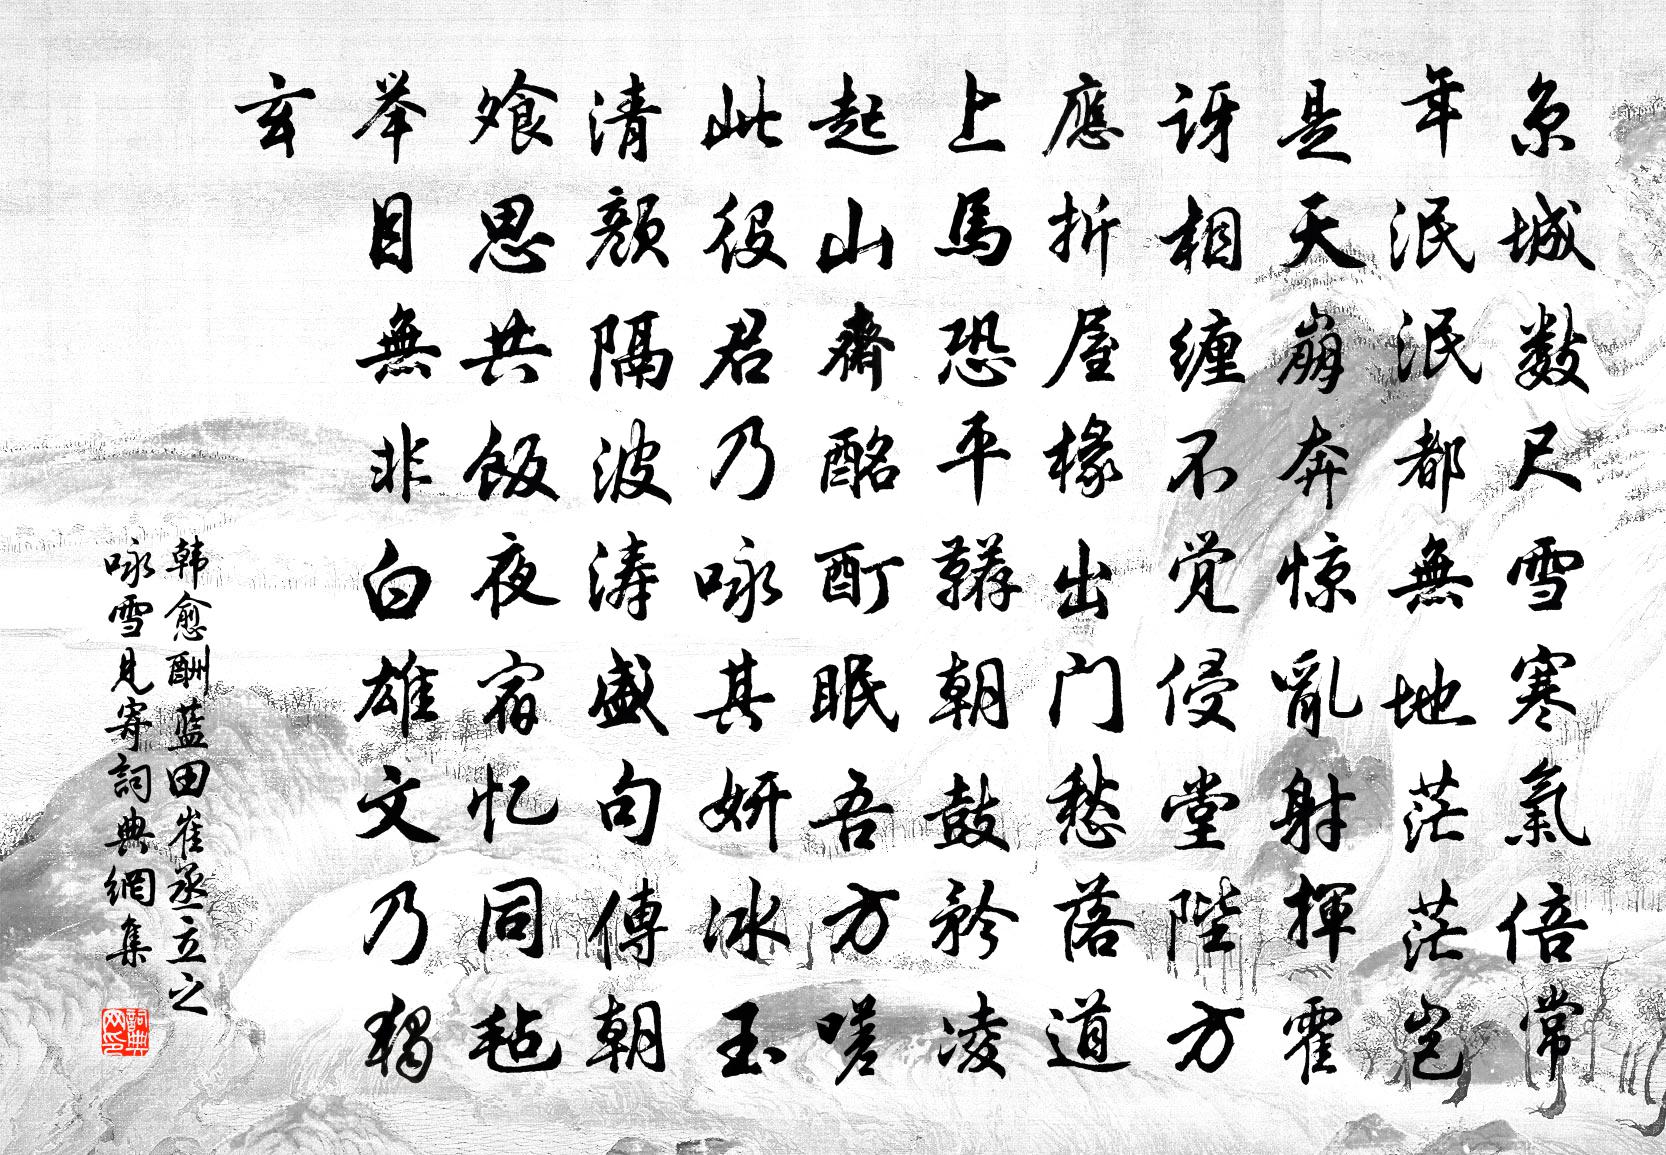 京城数尺雪寒氣倍常
年泯泯都無地茫茫岂
是天崩奔惊亂射揮霍
讶相缠不觉侵堂陛方
應折屋椽出门愁落道
上馬恐平鞯朝鼓矜凌
起山齋酩酊眠吾方嗟
此役君乃咏其妍冰玉
清颜隔波涛盛句傳朝
飧思共飯夜宿忆同毡
举目無非白雄文乃獨
玄
韩愈酬蓝田崔丞立之
咏雪見寄詞典網集
詞典网印